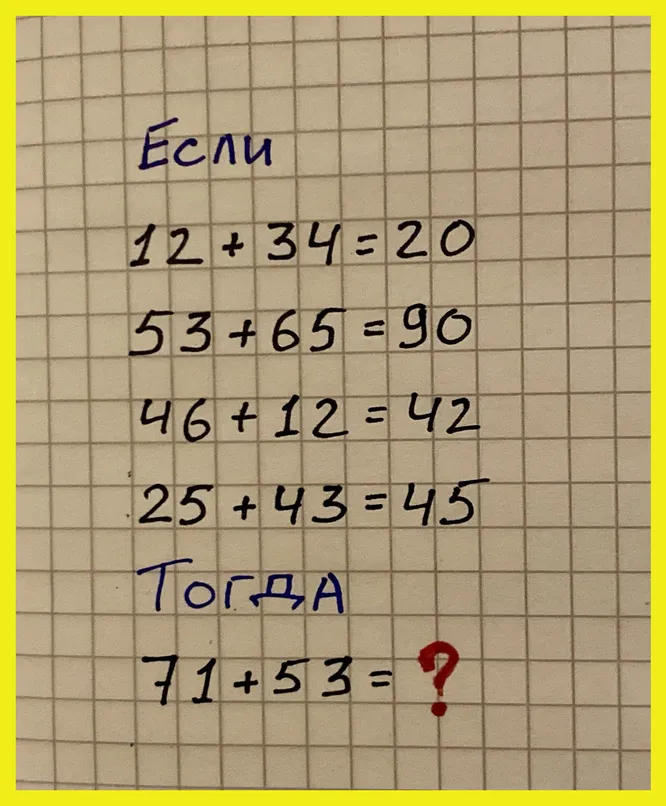 Если
12 + 34 = 20
53 + 65 = 90
46 + 12 = 42
25 + 43 = 45
Тогда
71 + 53 = ?